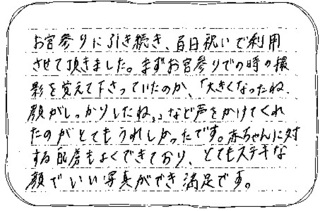 お宮参りに引き続き、百日祝いで利用
させて頂きました。まずお宮参りでの時の撮
影を覚えて下さっていたのか、「大きくなったね、
顔がしっかりしたね」など声をかけてくれ
たのがとてもうれしかったです。赤ちゃんに対
する配慮もよくできており、とてもステキな
顔でいい写真ができ満足です。